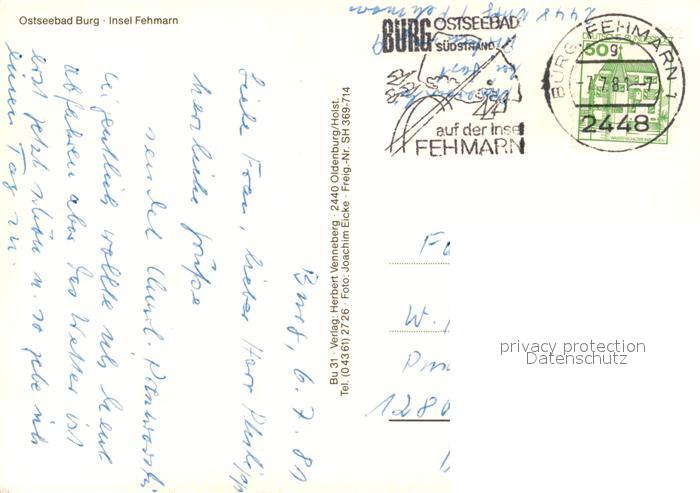 Ostseebad Burg · Insel Fehmarn
Burg, 6. 7. 81
Liebe Frau, lieber Herr
herzliche Grüße
sendet
Eigentlich wollte ich heute
abfahren aber das Wetter ist
erst jetzt schön u. so gebe ich
einen Tag zu.
Bu 31 · Verlag: Herbert Venneberg · 2440 Oldenburg/Holst.
Tel. (0 43 61) 27 26 · Foto: Joachim Eicke · Freig.-Nr. SH 369-714
2448 Burg / Fehmarn
BURG OSTSEEBAD
SÜDSTRAND
auf der Insel
FEHMARN
BURG, FEHMARN 1
g
2448
DEUTSCHE BUNDESPOST
50
W.
1280
privacy protection
Datenschutz